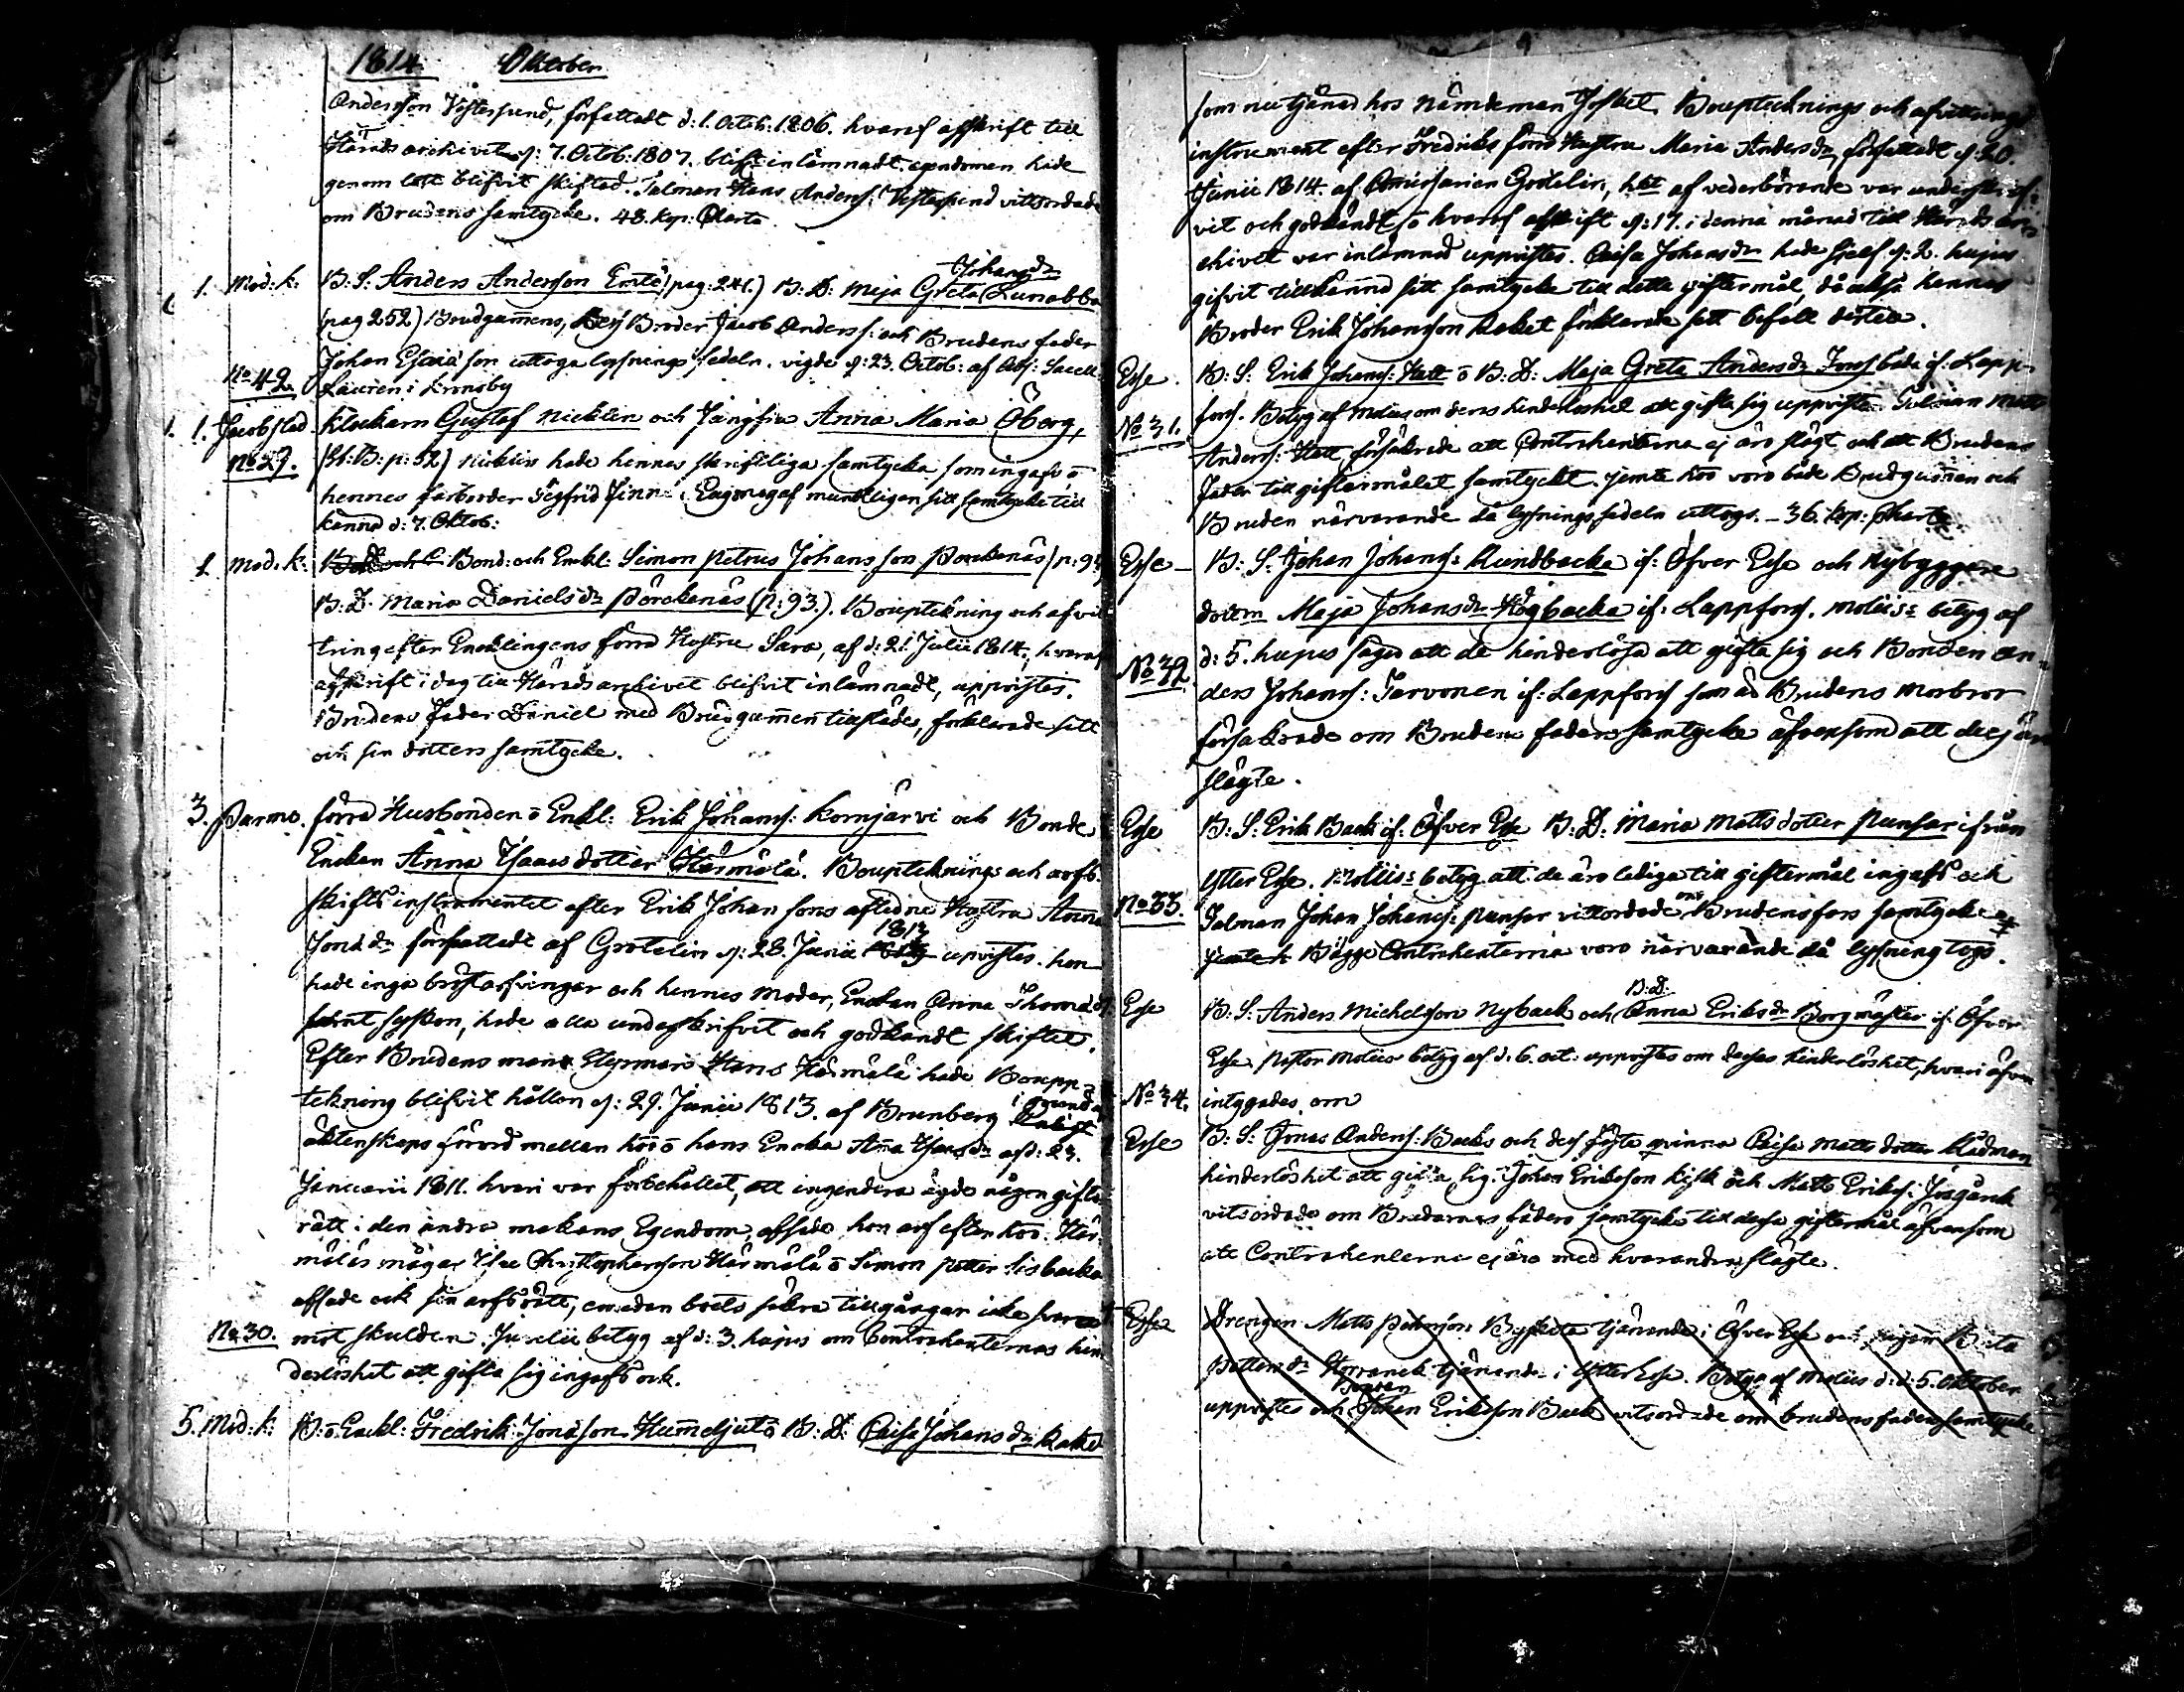 1814. Oktober
Anderson Vestersund, författadt d: 1. Octob: 1806. hvaraf afskrift till
Härads archivet d: 7. Octob: 1807. blifvit inlämnadt. egendomen hade
genom lott blifvit skiftad. Talman Hans Anders: Vestersund vittsordade
om Brudens samtycke. 48. kop: Charta.
Johansdr
1. Mod: k: B: S: Anders Anderson Emlö (pag: 241.) B: D: Maja Greta Lunabba
(pag 252) Brudgummens Broder Jacob Anderss: och Brudens fader
Johan Esaiæ son uttoga lysnings sedeln. vigde d: 23. Octob: af Sacell:
No 42. Lauren i Kronoby
1. 1. Jacobstad Klockarn Gustaf Nicklin och Jungfru Anna Maria Öberg,
No 29. (St: B: p: 52) Nicklin hade hennes skriftliga samtycke som ingafs o
hennes farbroder Sigfrid Finnä muntligen sitt samtycke till
känna d: 7. Oktob:
1. Mod: k: Bond: och Enkl: Simon Petrus Johansson Pörckenäs (p: 93)
B: D: Maria Danielsdr Pörckenäs (p: 93.). Boupteckning och afvit
tring efter Encklingens förra Hustru Sara, af d: 21. Julii 1814, hvaraf
afskrift i dag till Härads archivet blifvit inlämnadt, uppvistes.
Brudens Fader Daniel med Brudgummen tillstädes, förklarade sitt
och sin dotters samtycke.
3. Purmo. förra Husbonden o Enkl: Erik Johans: Kornjärvi och Bonde
Enckan Anna Isaacs dotter Härmälä. Boupteknings och arfs
skifts instrumentet efter Erik Johansons afledne Hustru Anna
Jonædr författadt af Grotelin d: 28. Junii 1813 upvistes. hon
hade inga bröstarfvingar och hennes moder, Enckan Anna Thomædr
samt syskon, hade alla underskrifvit och godkändt skiftet.
Efter Brudens mans Hans Härmälä hade Boupp-
tekning blifvit hållen d: 29. Junii 1813. af Brunberg i grund af
äktenskaps förord mellan hoo o hans Encka Anna Isacsdr af d: 23.
Januarii 1811. hvari var förbehållet, att ingendera ägde någon gifto
rätt i den andra makans Egendom, afsade hon arf efter hoo. Här
mäläs mågar Isac Christophersson Härmälä o Simon Petter Lisbacka
afsade ock sin arfsrätt, emedan boets säkra tillgångar icke svarat
No 30. mot skulden. betyg af d: 3. hujus om Contrahenternas hin
derlöshet att gifta sig ingafs ock.
5. Mod: k: B: o Enkl: Fredrik Jonæson Humeljut o B: D: Caisa Johansdr Raket
som nu tjänad hos nämdeman Boupteknings och afvittrings
instrument efter Fredriks förra Hustru Maria Andersdr författadt d: 20.
Junii 1814. af Commissarien Grotelin, hvilket af vederbörande var underskrif-
vit och godkändt o hvaraf afskrift d: 17. i denna månad till Härads ar-
chivet var inlämnad uppvistes. Caisa Johansdr hade sjelf d: 2. hujus
gifvit tillkänna sitt samtycke till detta giftermål, då också hennes
Broder Erik Johansson Raket förklarade sitt bifall dertill.
Esse. B: S: Erik Johans: Hatt o B: D: Maja Greta Andersdr Fors båda if: Lapp-
No 31. fors. Betyg af Molius om deras hinderlöshet att gifta sig uppvistes. Talman Matts
Anders: Hatt försäkrade att Contrahenterna ej äro slägt och att Brudens
Fader till giftermålet samtyckt. jemte hoo voro både Brudgumman och
Bruden närvarande då lysnings sedeln uttogs. - 36. kop: Charta.
Esse - B: S: Johan Johans: Kundbacka if: Öfver Esse och Nybyggare
dottrn Maja Johansdr Högbacka if: Lappfors. Molius: betyg af
No 32. d: 5. hujus säger att de hinderlösa att gifta sig och Bonden An-
ders Johans: Tarvonen if: Lappfors som är Brudens morbror
försäkrade om Brudens faders samtycke äfvensom att de ej äro
slägte.
Esse B: S: Erik Back if: Öfver Esse B: D: Maria Matts dotter Punsar ifrån
Ytter Esse. Molius: betyg att de äro lediga till giftermål ingafs och
No 33. Talman Johan Johans: Punsar vittsordade om Brudens fars samtycke
Bägge Contrahenterna voro närvarande då lysning togs.
B: D:
Esse B: S: Anders Michelsson Nyback och Anna Eriksdr Borgmästar if: Öfver
Esse. Pastor Molius betyg af d. 6. oct: uppvistes om dessas hinderlöshet, hvari äfven
No 34. intygades om
Esse B: S: Jonas Anders: Backs och dess fästeqvinna Caisa Matts dotter Rådman
hinderlöshet att gifta sig. Johan Eriksson Kisk och Matts Eriks:
vitsordade om Brudarnas fäders samtycke till dessa giftermål äfvensom
att Contrahenterna ej äro med hvarandra slägte.
Esse Drengen Matts tjänande i Öfver Esse och pigan Brita
tjänande i Ytter Esse. Betyg af Molius d: 5. Oktober
uppvistes och Bonden Johan Eriksson Back vitsordade om brudens faders samtycke